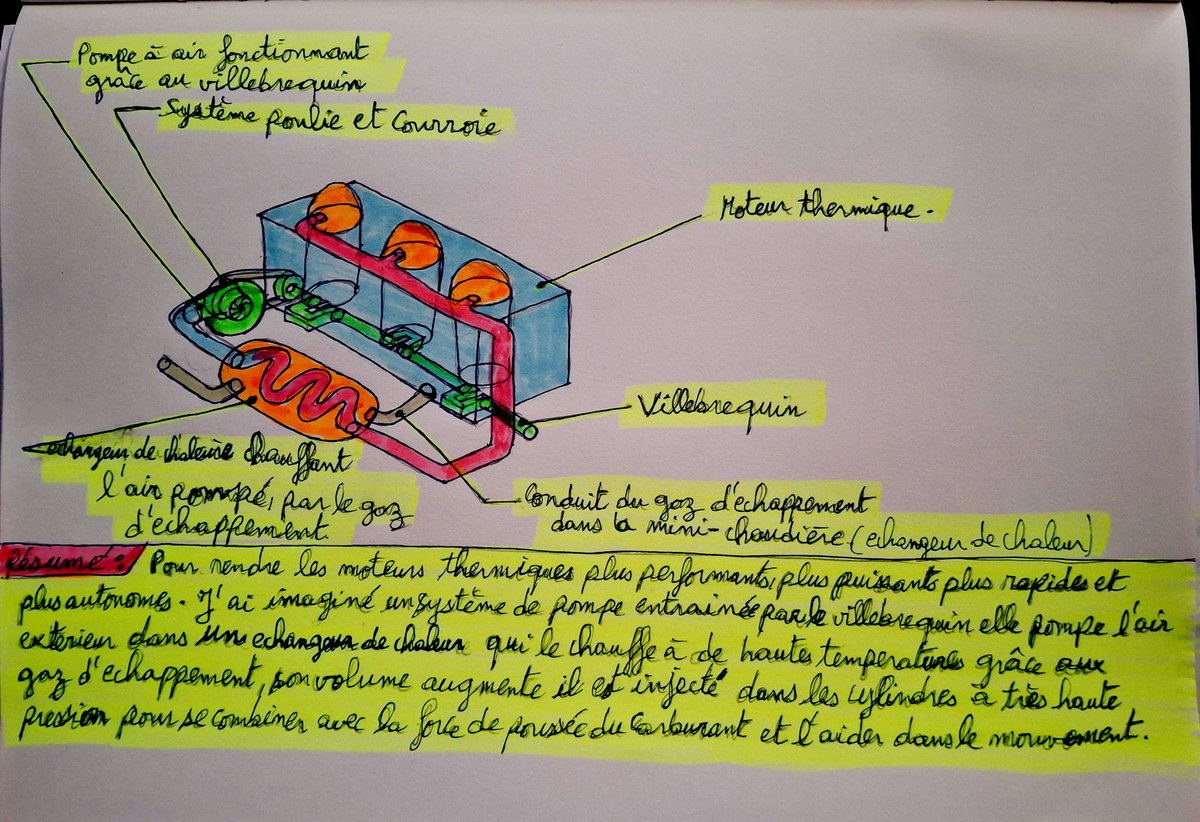 Pompe à air fonctionnant
grâce au villebrequin
Système poulie et courroie
Moteur thermique.
Villebrequin
echangeur de chaleur chauffant
l'air pompé, par le gaz
d'echappement.
Conduit du gaz d'echappement
dans la mini-chaudière (echangeur de chaleur)
Résumé: Pour rendre les moteurs thermiques plus performants, plus puissants plus rapides et
plus autonomes. J'ai imaginé un système de pompe entrainée par le villebrequin elle pompe l'air
extérieur dans un echangeur de chaleur qui le chauffe à de hautes temperatures grâce aux
gaz d'echappement, son volume augmente il est injecté dans les cylindres à très haute
pression pour se combiner avec la force de poussée du carburant et l'aider dans le mouvement.